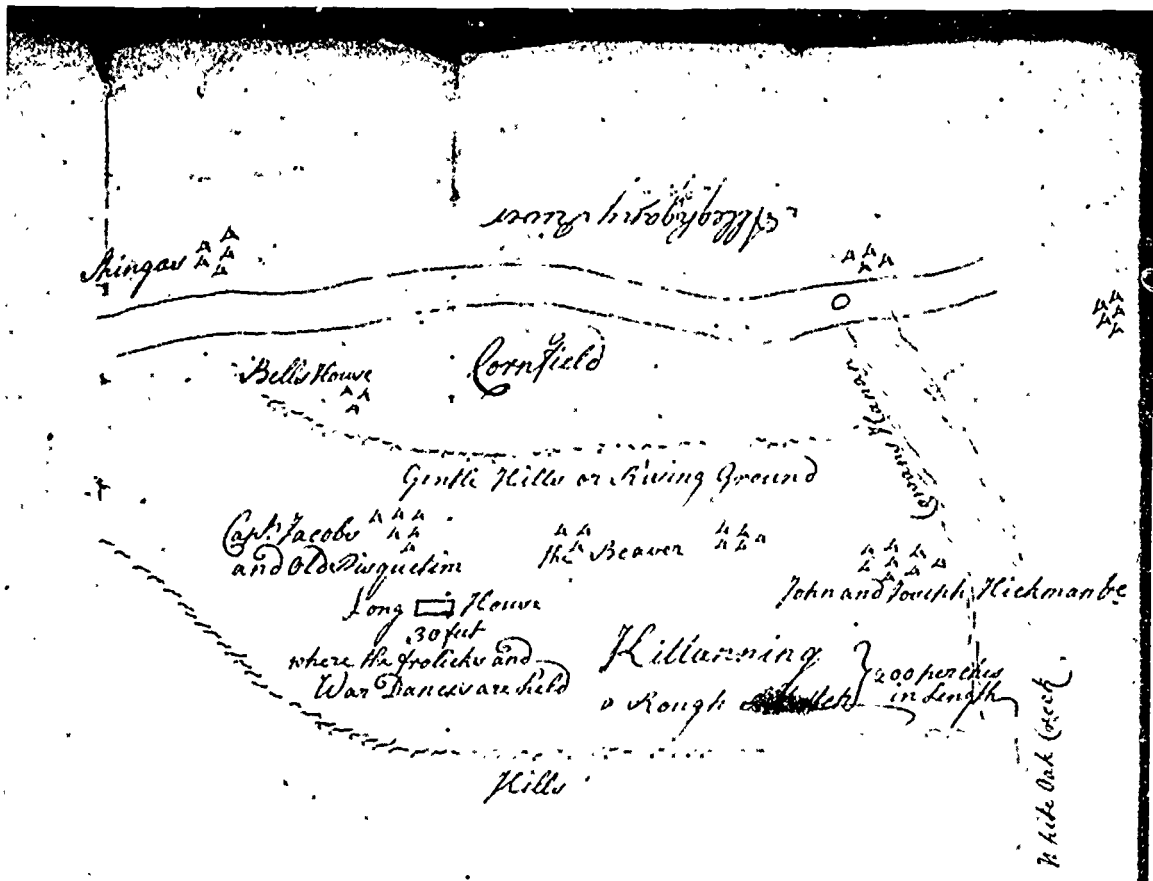 Alleghany River
Shingas
Bells House
Cornfield
Gentle Hills or Rising Ground
Capt. Jacobs
and Old Disquetim
the Beaver
John and Joseph Hickman &c
Long House
30 feet
where the frolicks and
War Dances are held
Kittanning
a Rough Sketch
200 perches
in Length
Hills
White Oak Creek